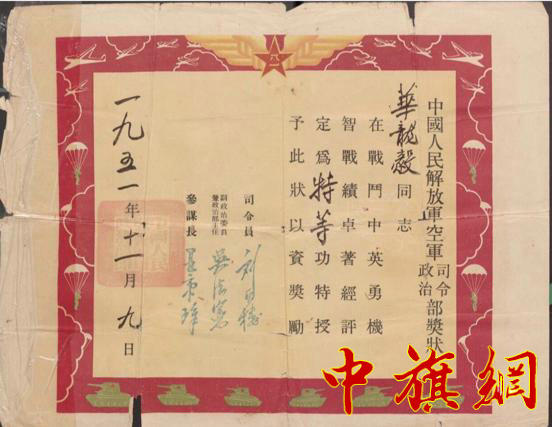 八一
中國人民解放軍空軍司令政治部獎狀
華龍毅同志
在戰鬥中英勇機
智戰績卓著經評
定為特等功特授
予此狀以資獎勵
司令員
副政治委員
兼政治部主任 吳法憲
參謀長 王秉璋
一九五一年十一月九日
中旗網